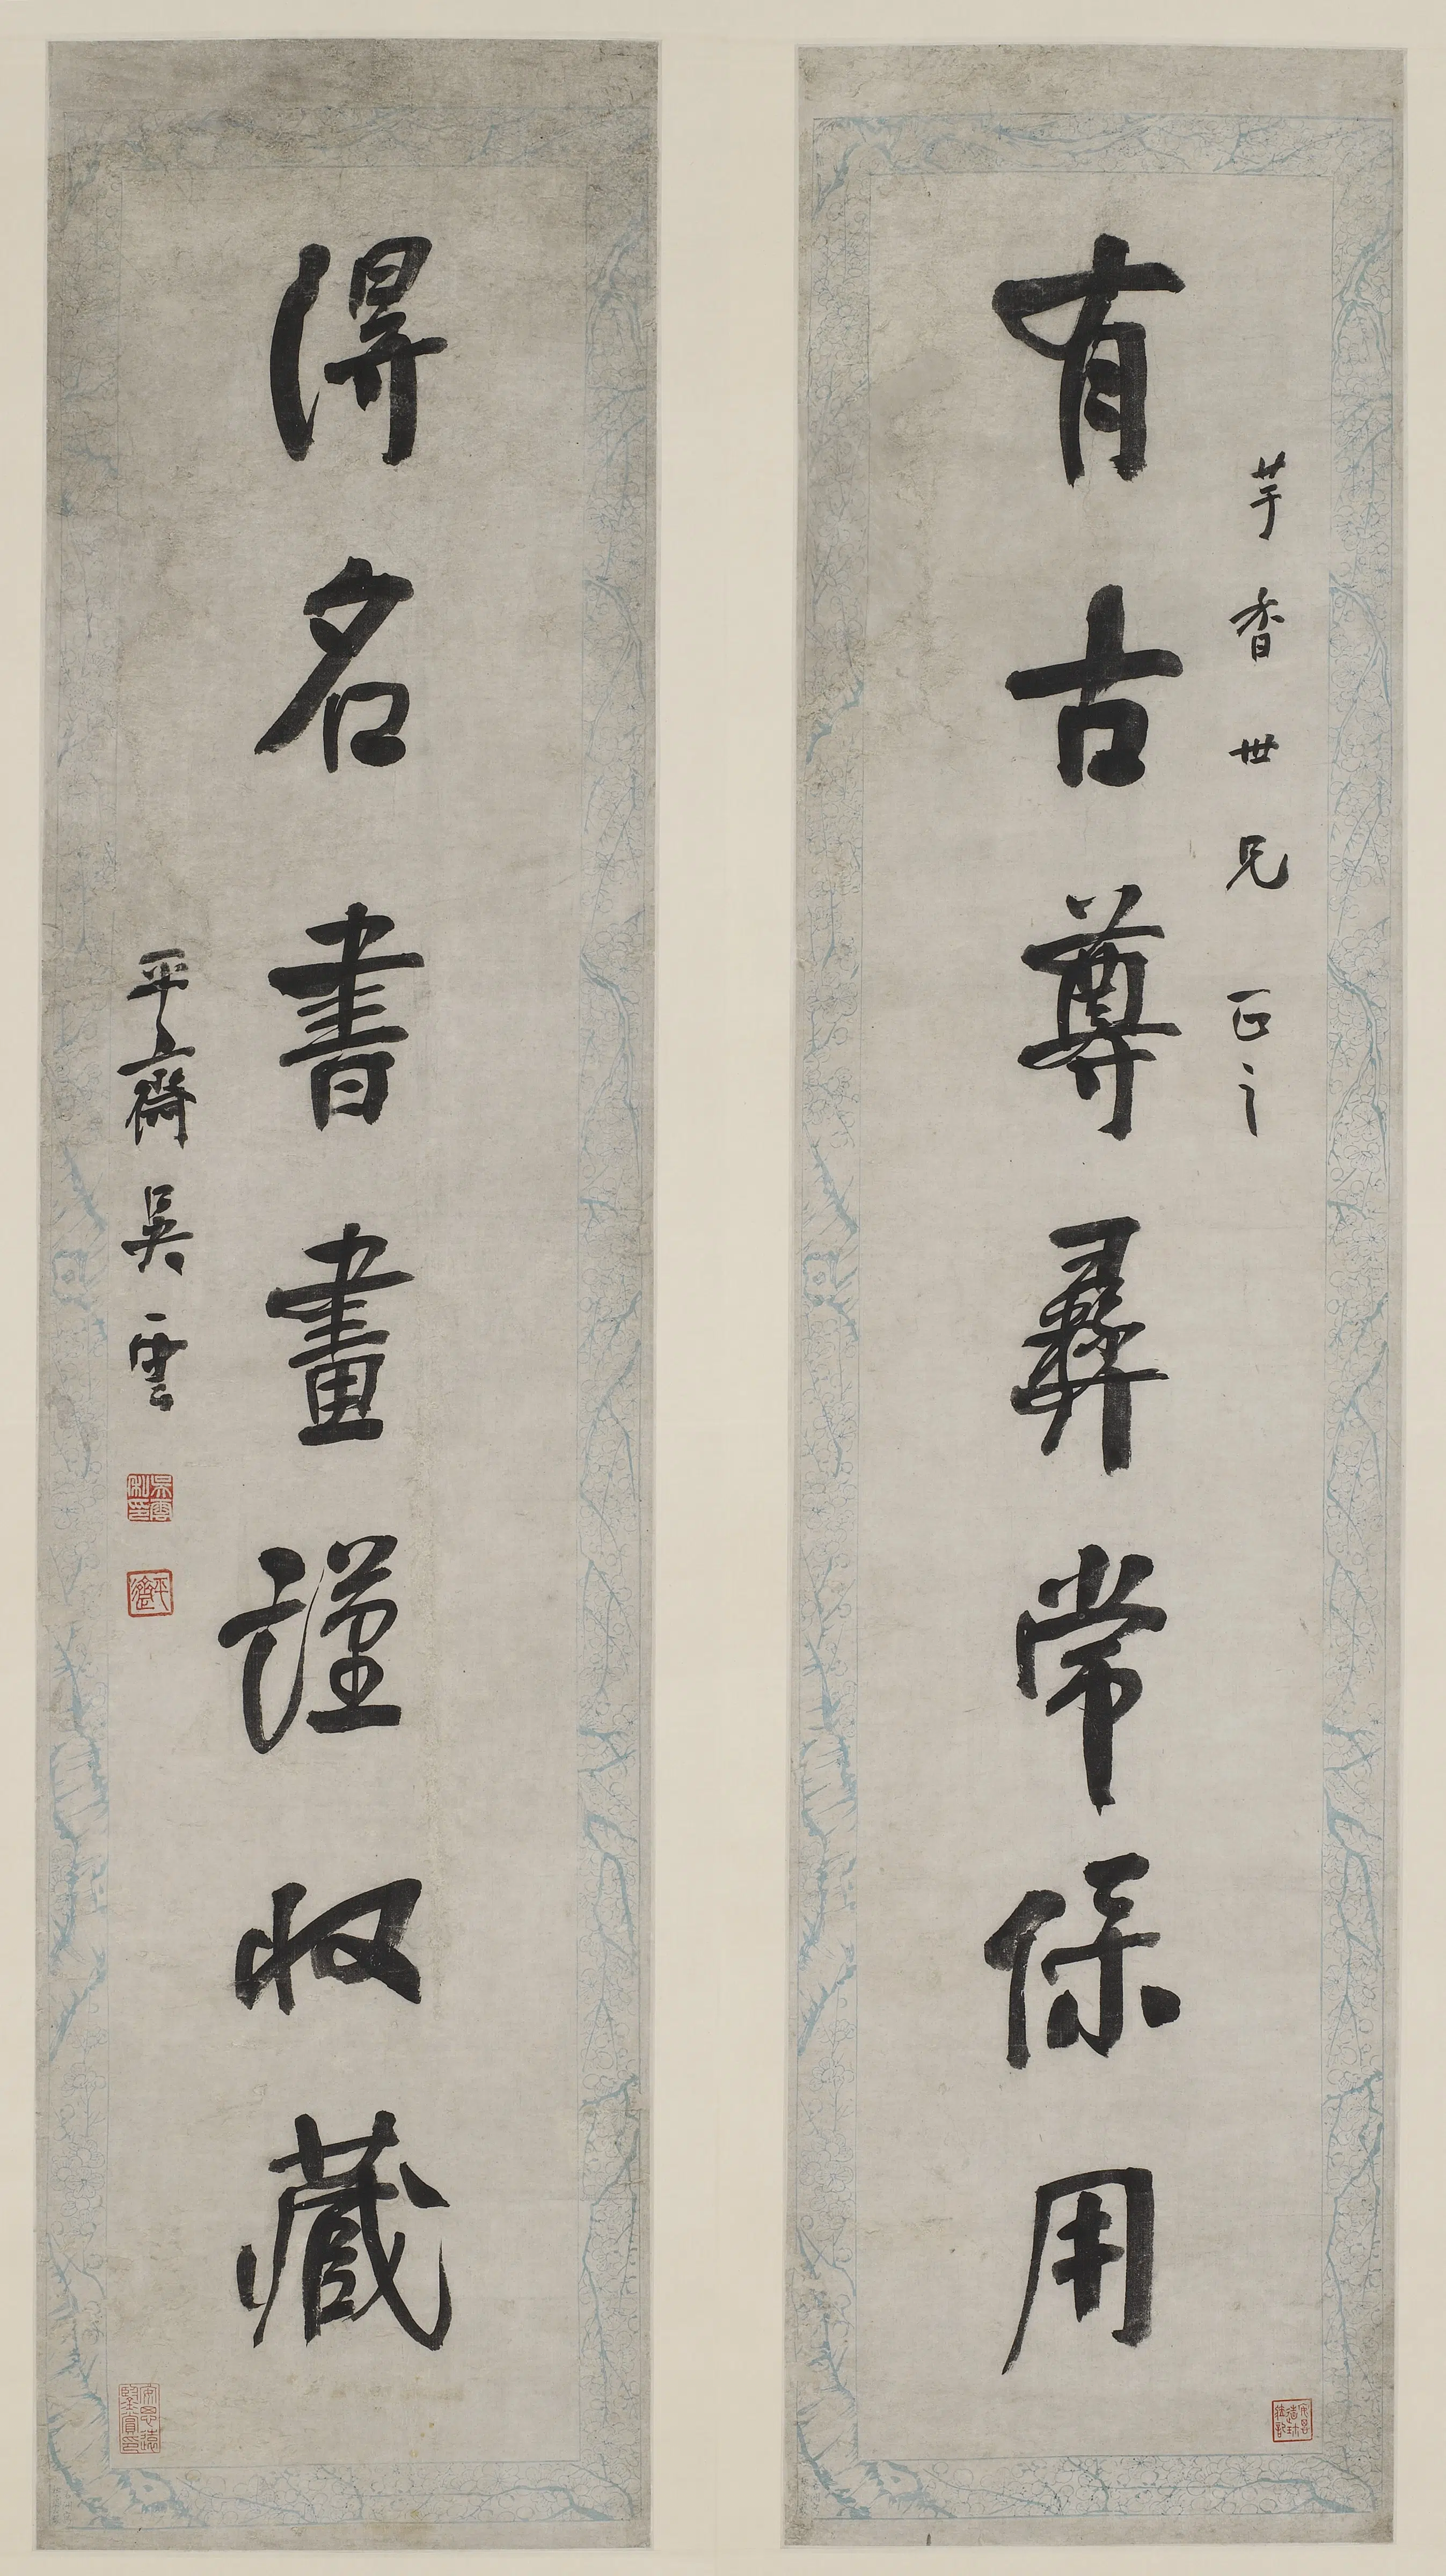 芋香世兄正之
有古尊彝常保用
得名書畫謹收藏
平齋吳雲
吳雲私印
平齋